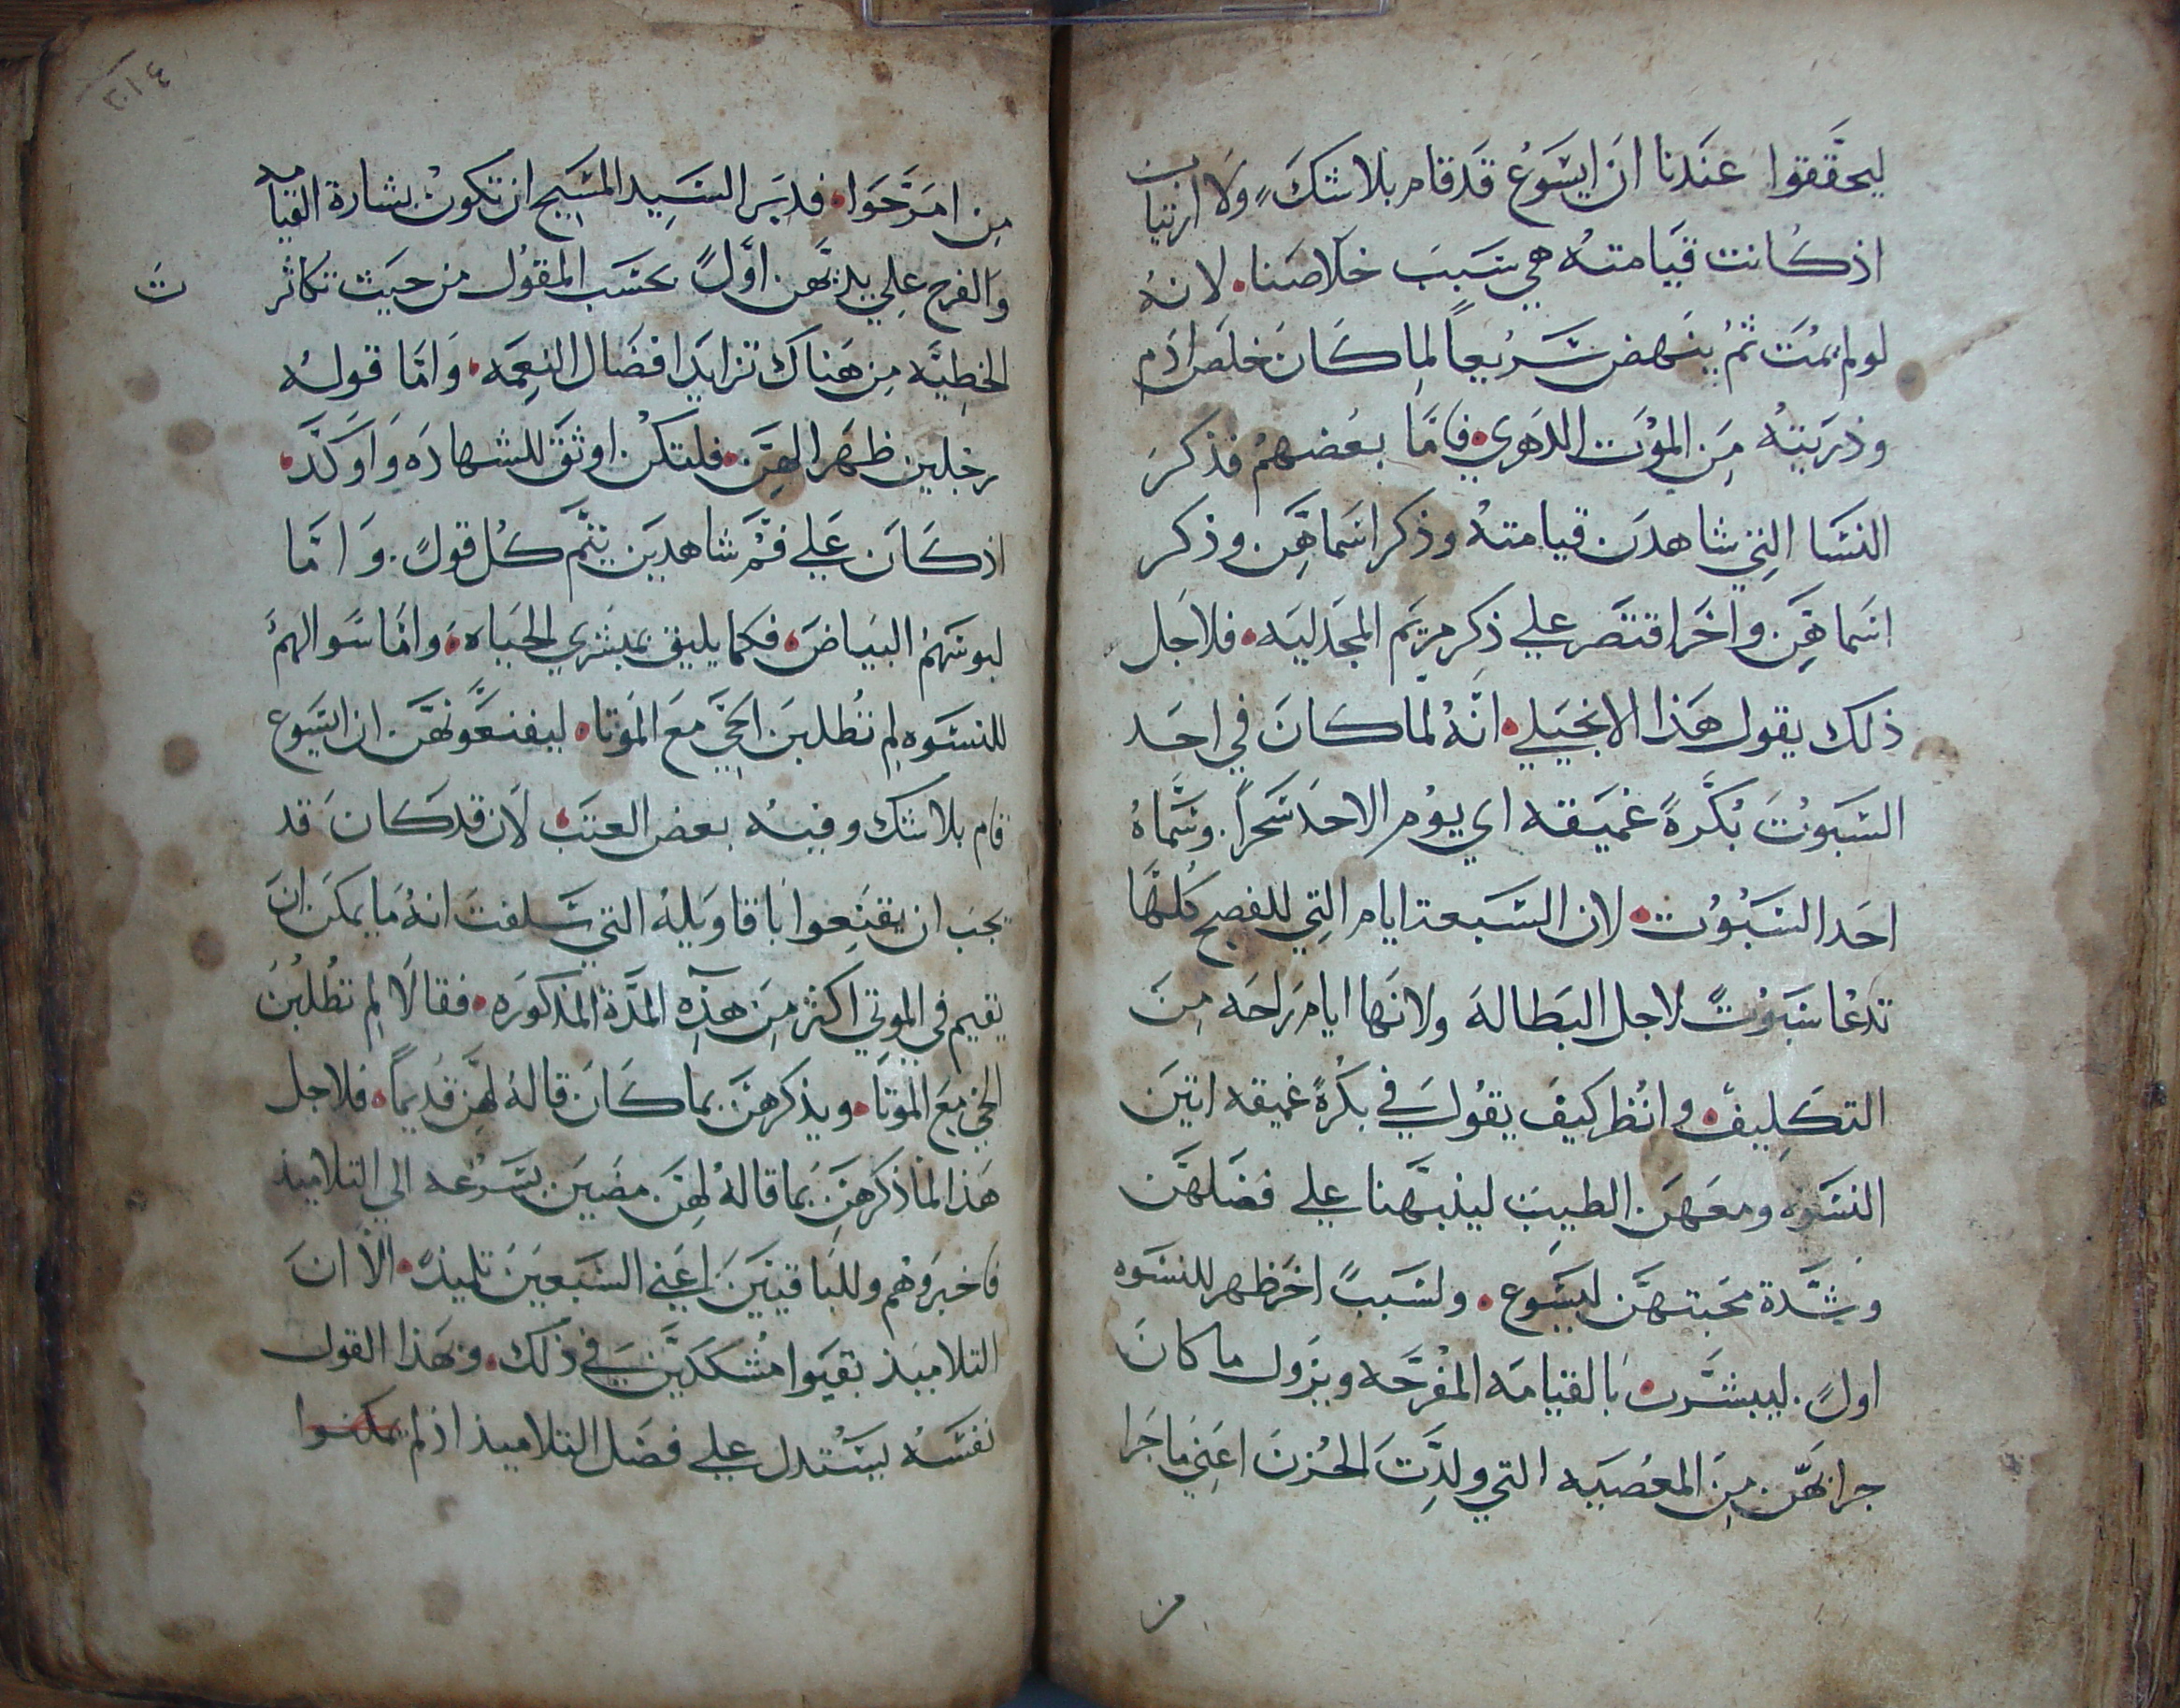 ليحققوا عندنا ان ايسوع قد قام بلا شك ولا ارتياب
اذ كانت قيامته هي سبب خلاصنا. لانه
لو لم يمت ثم ينهض سريعاً لما كان خلص ادم
وذريته من الموت الدهوي. فاما بعضهم فذكر
النسا التي شاهدن قيامته وذكر اسماهن وذكر
اسماهن واخر اقتصر علي ذكر مريم المجدليه. فلاجل
ذلك يقول هذا الانجيلي. انه لما كان في احد
السبوت بكرةً غميقه اي يوم الاحد سحراً. وسماه
احد السبوت. لان السبعة ايام التي للفصح كلها
تدعا سبوتً لاجل البطالة ولانها ايام راحه من
التكليف. وانظر كيف يقول في بكرةً غميقه اتين
النسوه ومعهن الطيب لينبهنا علي فضلهن
وشدة محبتهن ليسوع. ولسببً اخر ظهر للنسوه
اولً. ليبشرن بالقيامه المفرحه ويزول ما كان
جرا بهن من المعصيه التي ولدت الحزن اعني ما جرا
من
٢٠١٤
من امر حوا. فدبر السيد المسيح ان تكون بشارة القيامه
والفرح علي يديهن اولً بحسب المقول من حيث تكاثر
ث
الخطيه من هناك تزايد افضال النعمه. واما قوله
رجلين ظهرا لهن. فليكن اوثق للشهاده واوكد.
اذ كان علي فم شاهدين يتم كل قولً. واما
لبوسهم البياض. فكما يليق بمبشري الحياه. واما سوالهم
للنسوه لم تطلبن الحي مع الموتا. ليقنعونهن ان ايسوع
قام بلا شك وفيه بعض العتب. لان قد كان قد
يجب ان يقنعوا باقاويله التي سلفت انه ما يمكن ان
يقيم في الموتي اكثر من هذه المدة المذكوره. فقالا لم تطلبن
الحي مع الموتا. ويذكرهن بما كان قاله لهن قديماً. فلاجل
هذا لما ذكرهن بما قاله لهن مضين بسرعه الي التلاميذ
فاخبروهم وللباقيين اعني السبعين تلميذ. الا ان
التلاميذ بقيوا مشككين في ذلك. وبهذا القول
نفسه يستدل علي فضل التلاميذ اذ لم يمكنوا